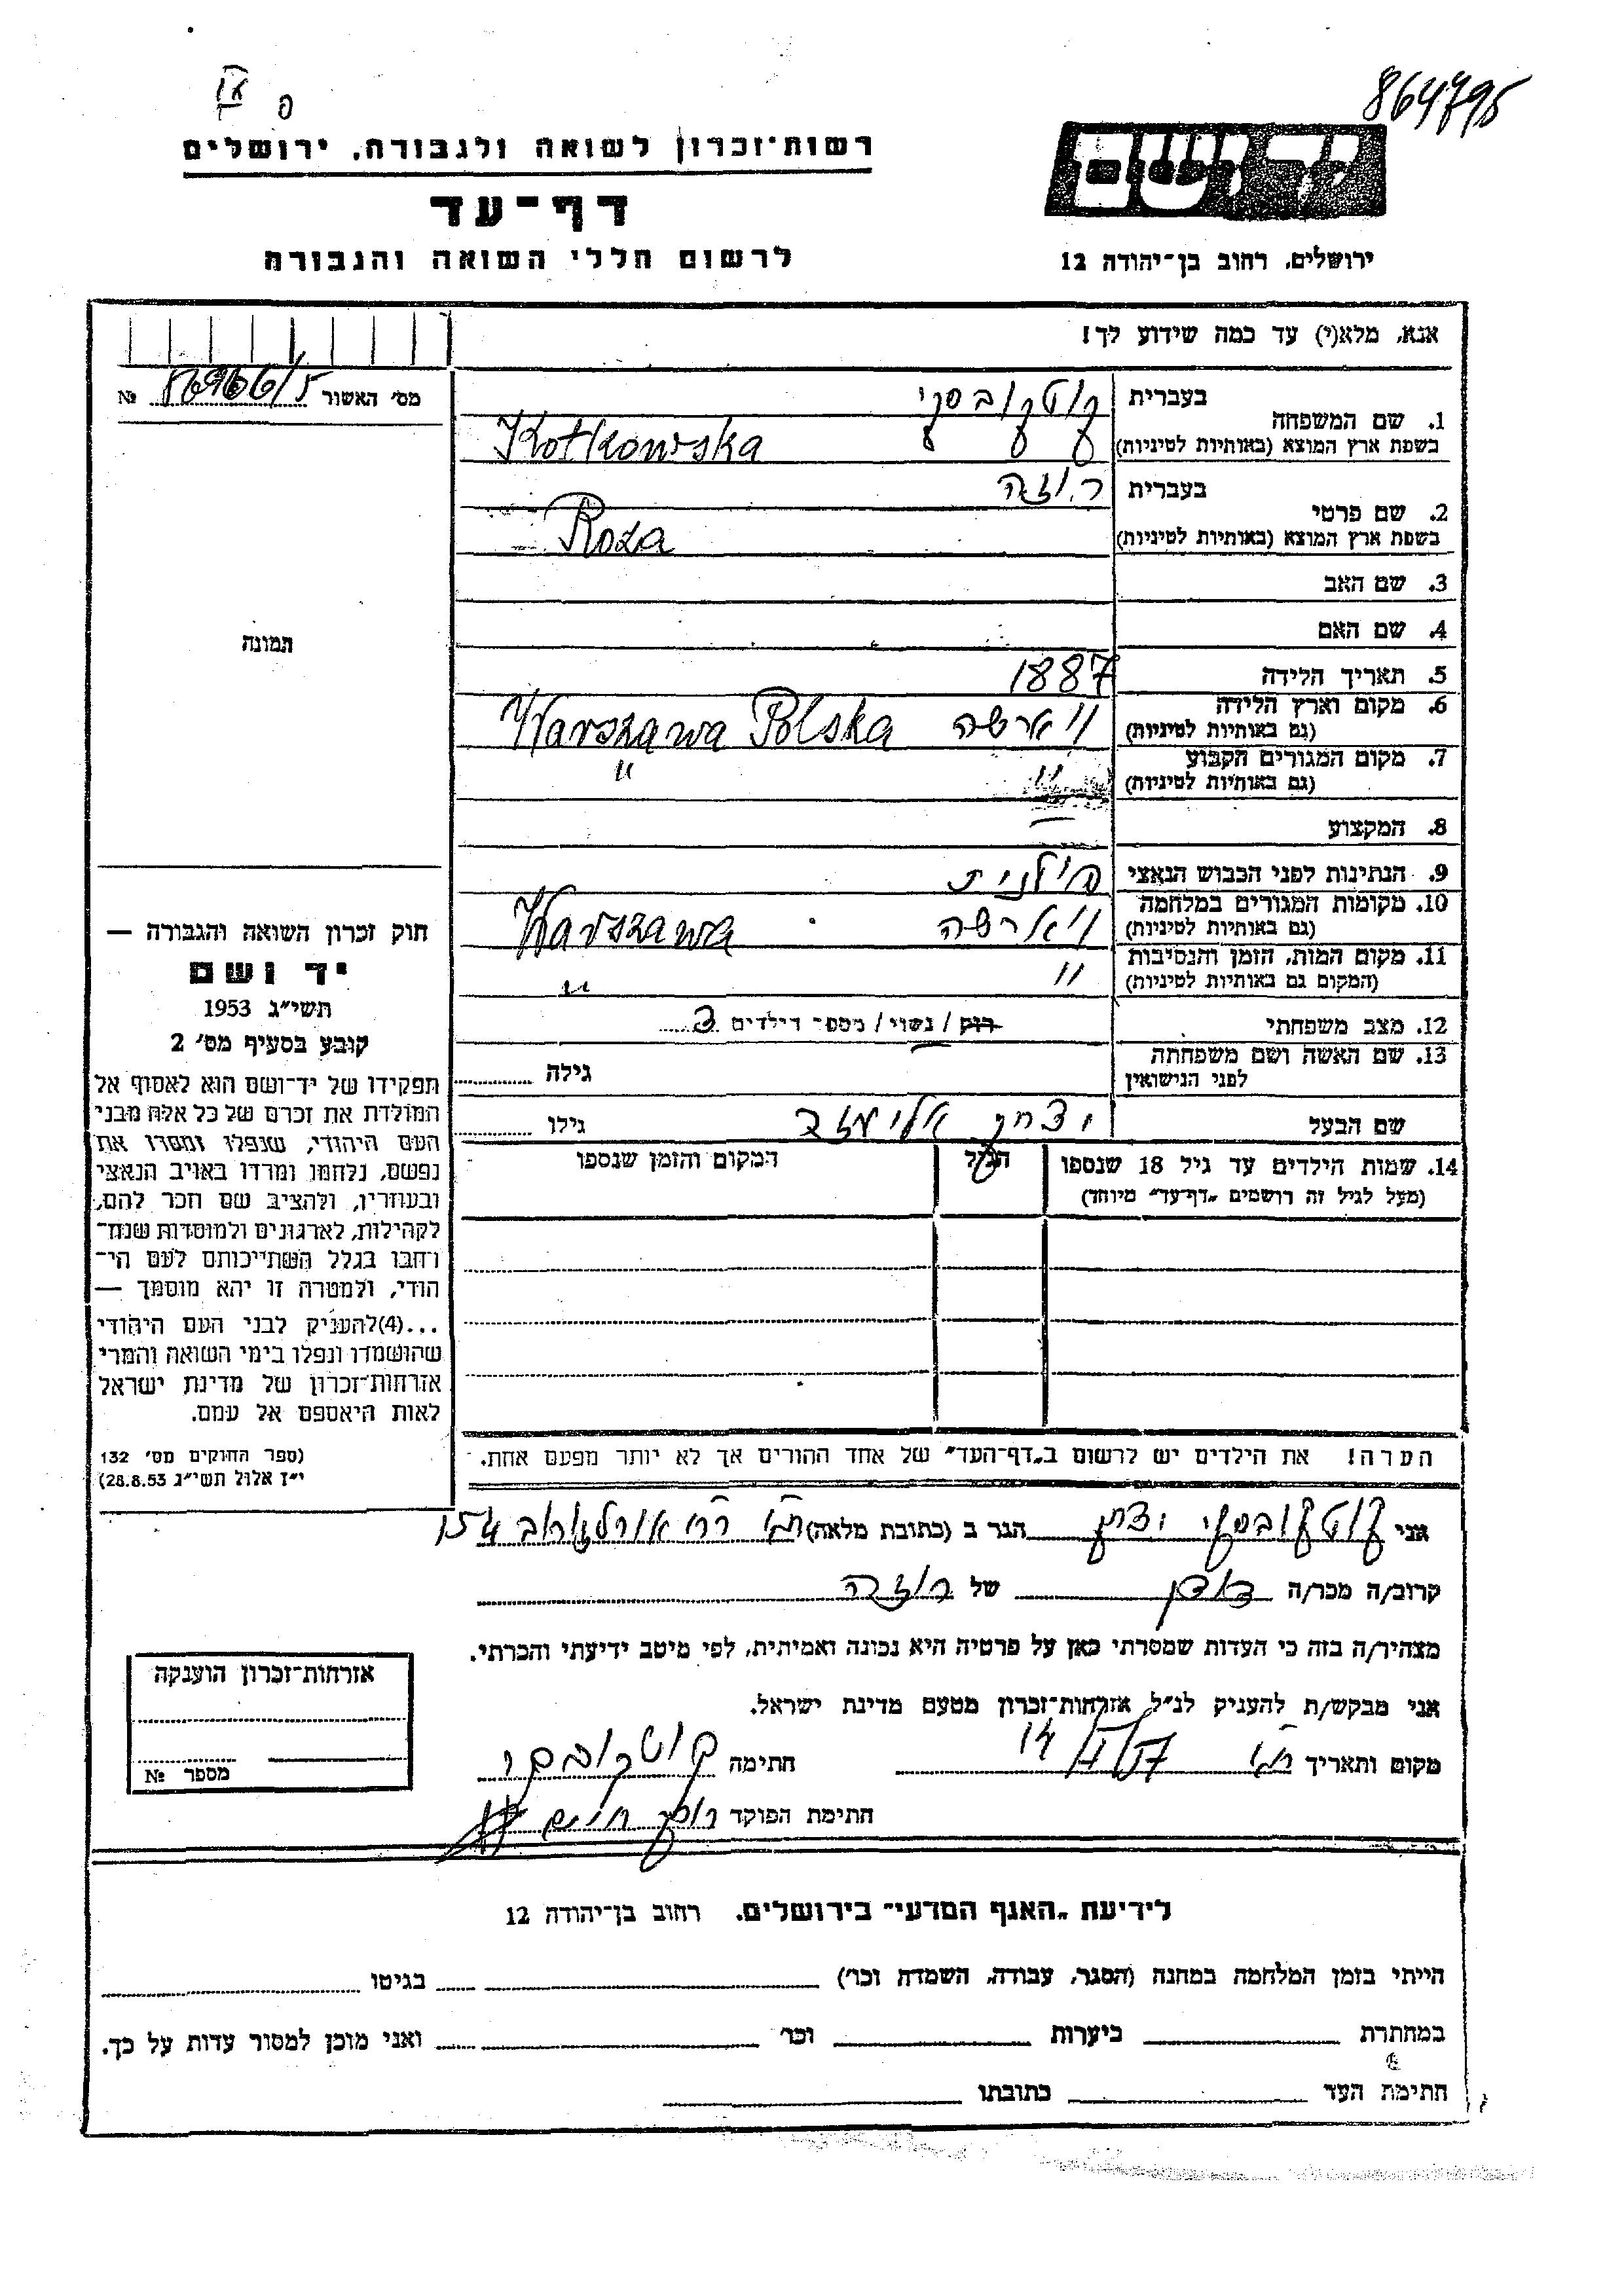 864795
רשות־זכרון לשואה ולגבורה, ירושלים
דף־עד
לרשום חללי השואה והגבורה
יד ושם
ירושלים, רחוב בן־יהודה 12
אנא, מלא(י) עד כמה שידוע לך!
מס׳ האשור №
תמונה
1. שם המשפחה
בעברית קוטקובסקי
בשפת ארץ המוצא (באותיות לטיניות) Kotkowska
2. שם פרטי
בעברית רוזה
בשפת ארץ המוצא (באותיות לטיניות) Roza
3. שם האב
4. שם האם
5. תאריך הלידה 1887
6. מקום וארץ הלידה (גם באותיות לטיניות) ווארשה Warszawa Polska
7. מקום המגורים הקבוע (גם באותיות לטיניות) " "
8. המקצוע —
9. הנתינות לפני הכבוש הנאצי פולנית
10. מקומות המגורים במלחמה (גם באותיות לטיניות) ווארשה Warszawa
11. מקום המות, הזמן והנסיבות (המקום גם באותיות לטיניות) " "
12. מצב משפחתי רווק / נשוי / מספר הילדים 3
13. שם האשה ושם משפחתה לפני הנישואין גילה
שם הבעל יצחק גילו
14. שמות הילדים עד גיל 18 שנספו
(מעל לגיל זה רושמים „דף־עד״ מיוחד)
הגיל
המקום והזמן שנספו
הערה! את הילדים יש לרשום ב„דף־העד״ של אחד ההורים אך לא יותר מפעם אחת.
חוק זכרון השואה והגבורה —
יד ושם
תשי״ג 1953
קובע בסעיף מס׳ 2
תפקידו של יד־ושם הוא לאסוף אל
המולדת את זכרם של כל אלה מבני
העם היהודי, שנפלו ומסרו את
נפשם, נלחמו ומרדו באויב הנאצי
ובעוזריו, ולהציב שם וזכר להם,
לקהילות, לארגונים ולמוסדות שנח־
רחבו בגלל השתייכותם לעם הי־
הודי, ולמטרה זו יהא מוסמך —
...(4)להעניק לבני העם היהודי
שהושמדו ונפלו בימי השואה והמרי
אזרחות־זכרון של מדינת ישראל
לאות היאספם אל עמם.
(ספר החוקים מס׳ 132
י״ז אלול תשי״ג 28.8.53)
אני קוטקובסקי יצחק הגר ב (כתובת מלאה) ת״א רח׳ ארלוזורוב 154
קרוב/ה מכר/ה של רוזה
מצהיר/ה בזה כי העדות שמסרתי כאן על פרטיה היא נכונה ואמיתית, לפי מיטב ידיעתי והכרתי.
אני מבקש/ת להעניק לנ״ל אזרחות־זכרון מטעם מדינת ישראל.
מקום ותאריך ת״א חתימה קוטקובסקי
חתימת הפוקד
אזרחות־זכרון הוענקה
מספר №
לידיעת „האגף המדעי״ בירושלים. רחוב בן־יהודה 12
הייתי בזמן המלחמה במחנה (הסגר, עבודה, השמדה וכר׳) בגיטו
במחתרת ביערות וכר׳ ואני מוכן למסור עדות על כך.
חתימת העד כתובתו